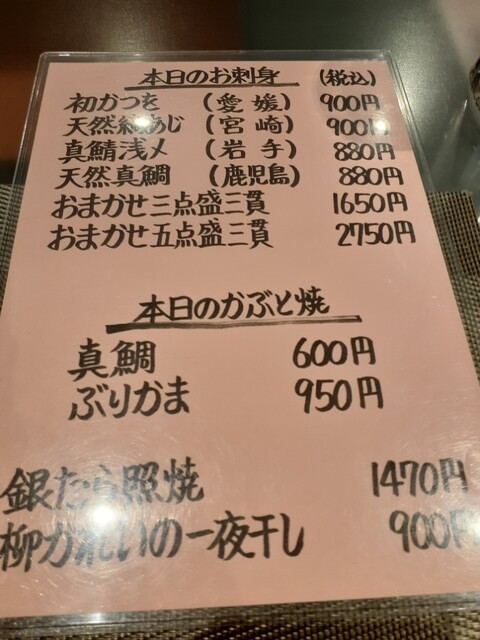 本日のお刺身 (税込)
初かつを (愛媛) 900円
天然 あじ (宮崎) 900円
真鯖浅〆 (岩手) 880円
天然真鯛 (鹿児島) 880円
おまかせ三点盛三貫 1650円
おまかせ五点盛三貫 2750円
本日のかぶと焼
真鯛 600円
ぶりかま 950円
銀たら照焼 1470円
柳がれいの一夜干し 900円